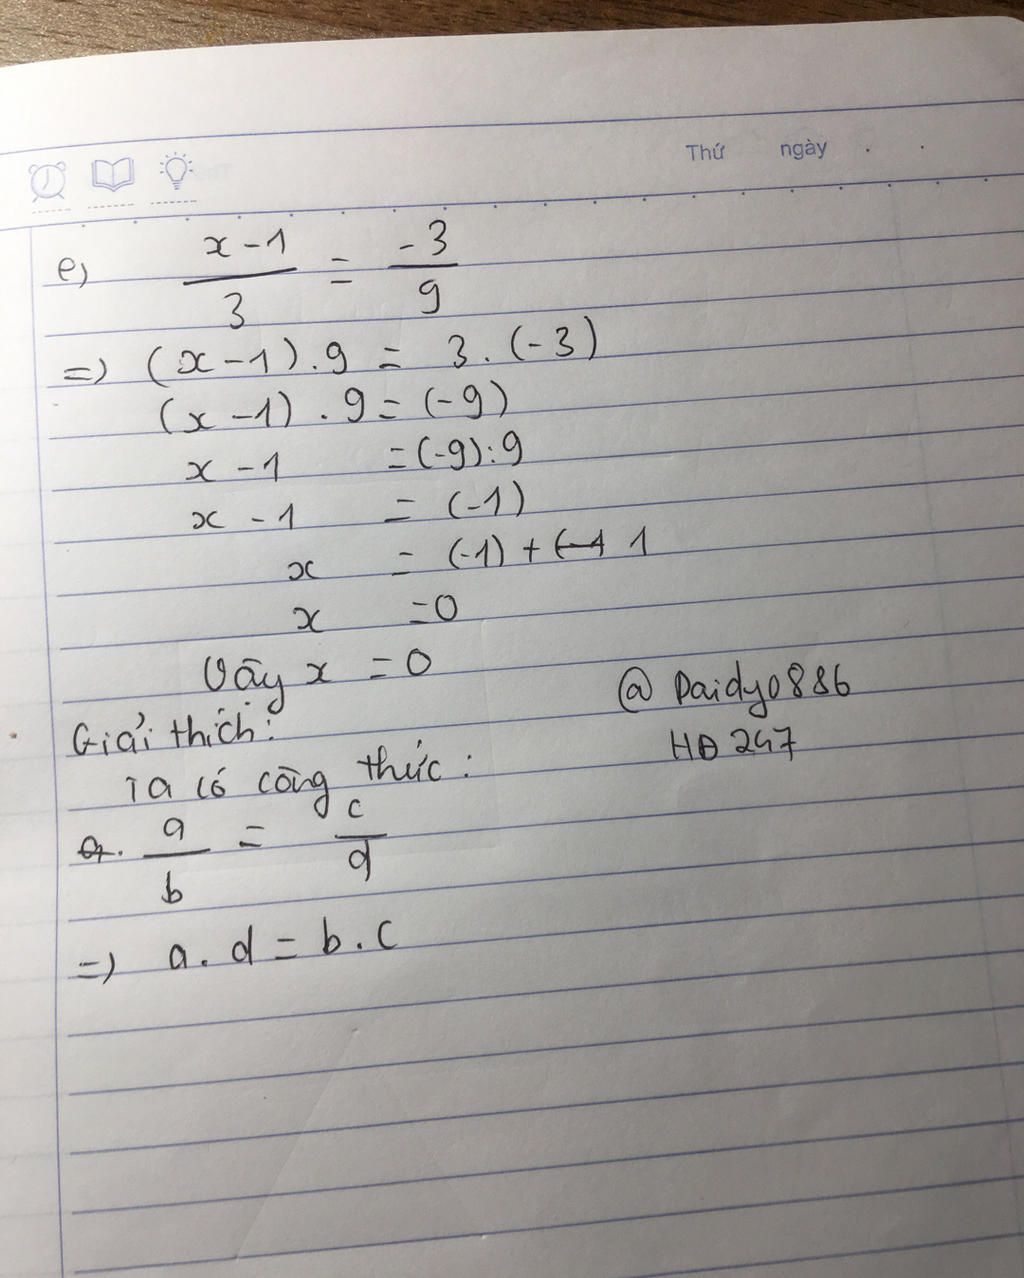 Thứ ngày
e) x - 1 / 3 = - 3 / 9
=) (x - 1) . 9 = 3 . (- 3)
(x - 1) . 9 = (- 9)
x - 1 = (-9) : 9
x - 1 = (- 1)
x = (-1) + 1
x = 0
Vậy x = 0
@ Daidy0886
Giải thích:
HĐ 247
Ta có công thức:
a / b = c / d
=) a . d = b . c